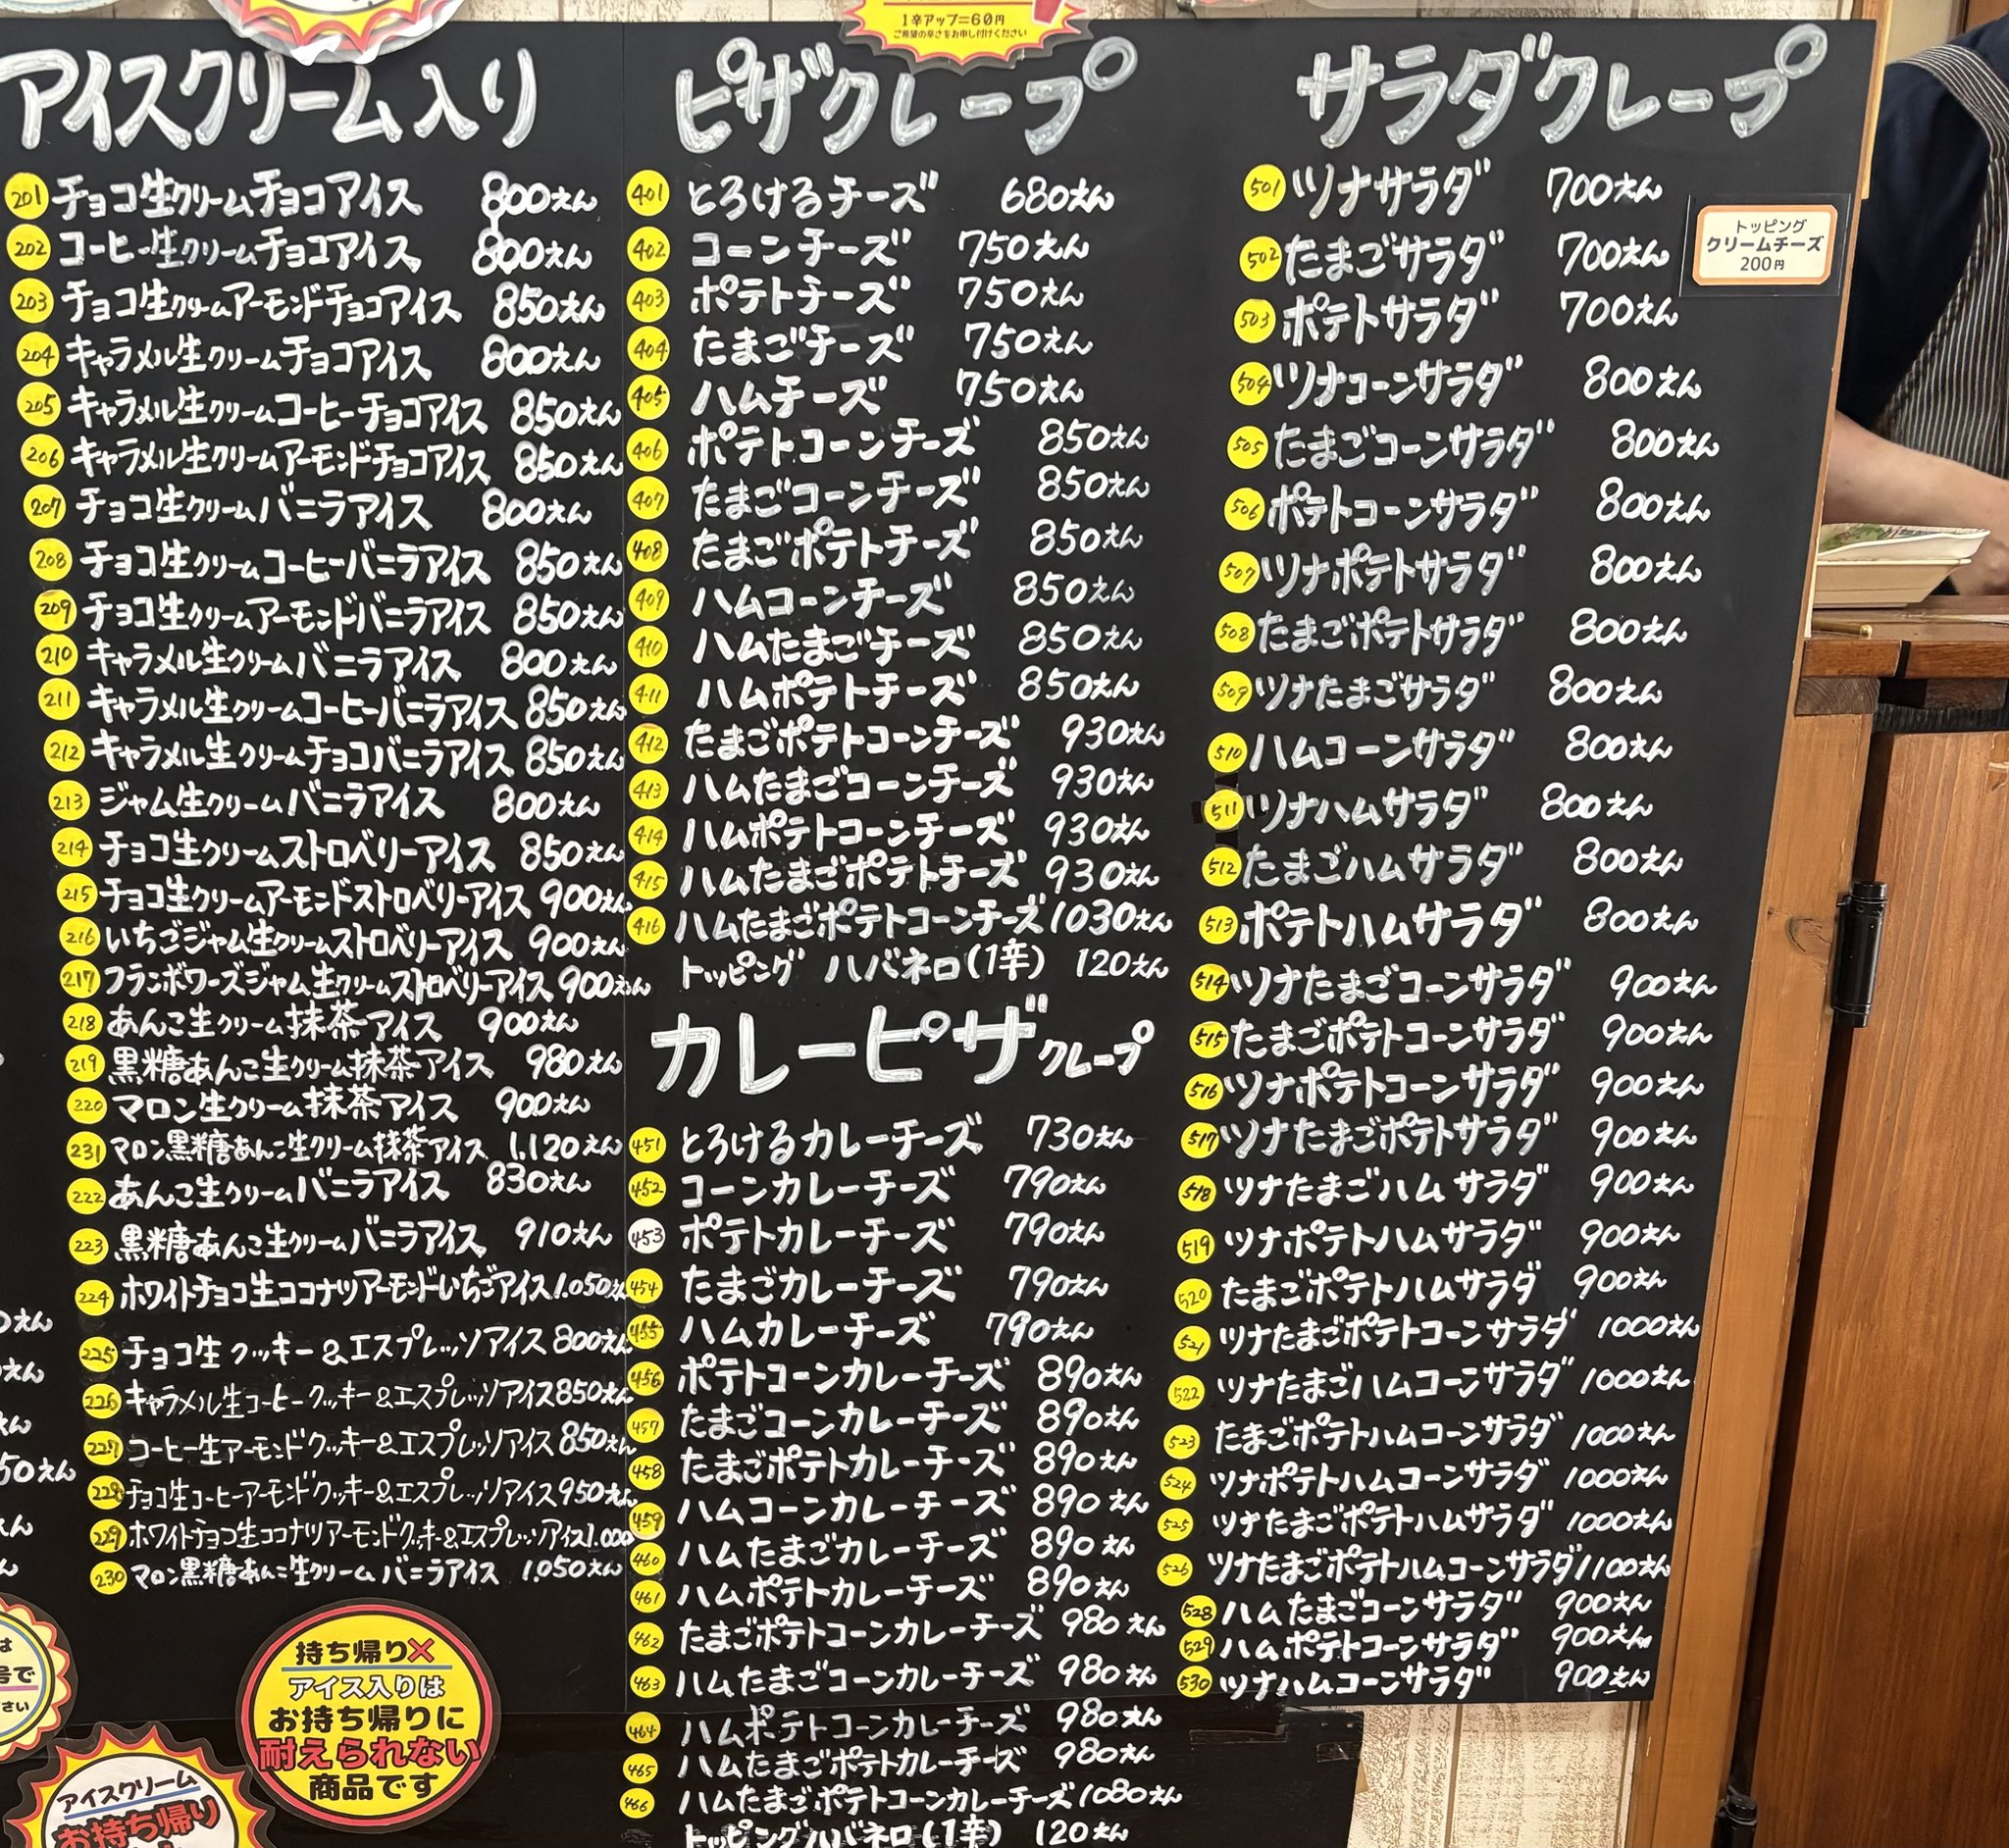 1辛アップ=60円
ご希望の辛さをお申し付けください
アイスクリーム入り
201 チョコ生クリームチョコアイス 800えん
202 コーヒー生クリームチョコアイス 800えん
203 チョコ生クリームアーモンドチョコアイス 850えん
204 キャラメル生クリームチョコアイス 800えん
205 キャラメル生クリームコーヒーチョコアイス 850えん
206 キャラメル生クリームアーモンドチョコアイス 850えん
207 チョコ生クリームバニラアイス 800えん
208 チョコ生クリームコーヒーバニラアイス 850えん
209 チョコ生クリームアーモンドバニラアイス 850えん
210 キャラメル生クリームバニラアイス 800えん
211 キャラメル生クリームコーヒーバニラアイス 850えん
212 キャラメル生クリームチョコバニラアイス 850えん
213 ジャム生クリームバニラアイス 800えん
214 チョコ生クリームストロベリーアイス 850えん
215 チョコ生クリームアーモンドストロベリーアイス 900えん
216 いちごジャム生クリームストロベリーアイス 900えん
217 フランボワーズジャム生クリームストロベリーアイス 900えん
218 あんこ生クリーム抹茶アイス 900えん
219 黒糖あんこ生クリーム抹茶アイス 980えん
220 マロン生クリーム抹茶アイス 900えん
231 マロン黒糖あんこ生クリーム抹茶アイス 1,120えん
222 あんこ生クリームバニラアイス 830えん
223 黒糖あんこ生クリームバニラアイス 910えん
224 ホワイトチョコ生ココナツアーモンドいちごアイス 1.050えん
225 チョコ生クッキー&エスプレッソアイス 800えん
226 キャラメル生コーヒークッキー&エスプレッソアイス 850えん
227 コーヒー生アーモンドクッキー&エスプレッソアイス 850えん
228 チョコ生コーヒーアーモンドクッキー&エスプレッソアイス 950えん
229 ホワイトチョコ生ココナツアーモンドクッキー&エスプレッソアイス 1.000
230 マロン黒糖あんこ生クリームバニラアイス 1.050えん
持ち帰り×
アイス入りは
お持ち帰りに
耐えられない
商品です
アイスクリーム
お持ち帰り
ピザクレープ
401 とろけるチーズ 680えん
402 コーンチーズ 750えん
403 ポテトチーズ 750えん
404 たまごチーズ 750えん
405 ハムチーズ 750えん
406 ポテトコーンチーズ 850えん
407 たまごコーンチーズ 850えん
408 たまごポテトチーズ 850えん
409 ハムコーンチーズ 850えん
410 ハムたまごチーズ 850えん
411 ハムポテトチーズ 850えん
412 たまごポテトコーンチーズ 930えん
413 ハムたまごコーンチーズ 930えん
414 ハムポテトコーンチーズ 930えん
415 ハムたまごポテトチーズ 930えん
416 ハムたまごポテトコーンチーズ 1030えん
トッピング ハバネロ(1辛) 120えん
カレーピザクレープ
451 とろけるカレーチーズ 730えん
452 コーンカレーチーズ 790えん
453 ポテトカレーチーズ 790えん
454 たまごカレーチーズ 790えん
455 ハムカレーチーズ 790えん
456 ポテトコーンカレーチーズ 890えん
457 たまごコーンカレーチーズ 890えん
458 たまごポテトカレーチーズ 890えん
459 ハムコーンカレーチーズ 890えん
460 ハムたまごカレーチーズ 890えん
461 ハムポテトカレーチーズ 890えん
462 たまごポテトコーンカレーチーズ 980えん
463 ハムたまごコーンカレーチーズ 980えん
464 ハムポテトコーンカレーチーズ 980えん
465 ハムたまごポテトカレーチーズ 980えん
466 ハムたまごポテトコーンカレーチーズ 1080えん
トッピングハバネロ(1辛) 120えん
サラダクレープ
501 ツナサラダ 700えん
502 たまごサラダ 700えん
503 ポテトサラダ 700えん
504 ツナコーンサラダ 800えん
505 たまごコーンサラダ 800えん
506 ポテトコーンサラダ 800えん
507 ツナポテトサラダ 800えん
508 たまごポテトサラダ 800えん
509 ツナたまごサラダ 800えん
510 ハムコーンサラダ 800えん
511 ツナハムサラダ 800えん
512 たまごハムサラダ 800えん
513 ポテトハムサラダ 800えん
514 ツナたまごコーンサラダ 900えん
515 たまごポテトコーンサラダ 900えん
516 ツナポテトコーンサラダ 900えん
517 ツナたまごポテトサラダ 900えん
518 ツナたまごハムサラダ 900えん
519 ツナポテトハムサラダ 900えん
520 たまごポテトハムサラダ 900えん
521 ツナたまごポテトコーンサラダ 1000えん
522 ツナたまごハムコーンサラダ 1000えん
523 たまごポテトハムコーンサラダ 1000えん
524 ツナポテトハムコーンサラダ 1000えん
525 ツナたまごポテトハムサラダ 1000えん
526 ツナたまごポテトハムコーンサラダ 1100えん
528 ハムたまごコーンサラダ 900えん
529 ハムポテトコーンサラダ 900えん
530 ツナハムコーンサラダ 900えん
トッピング
クリームチーズ
200円